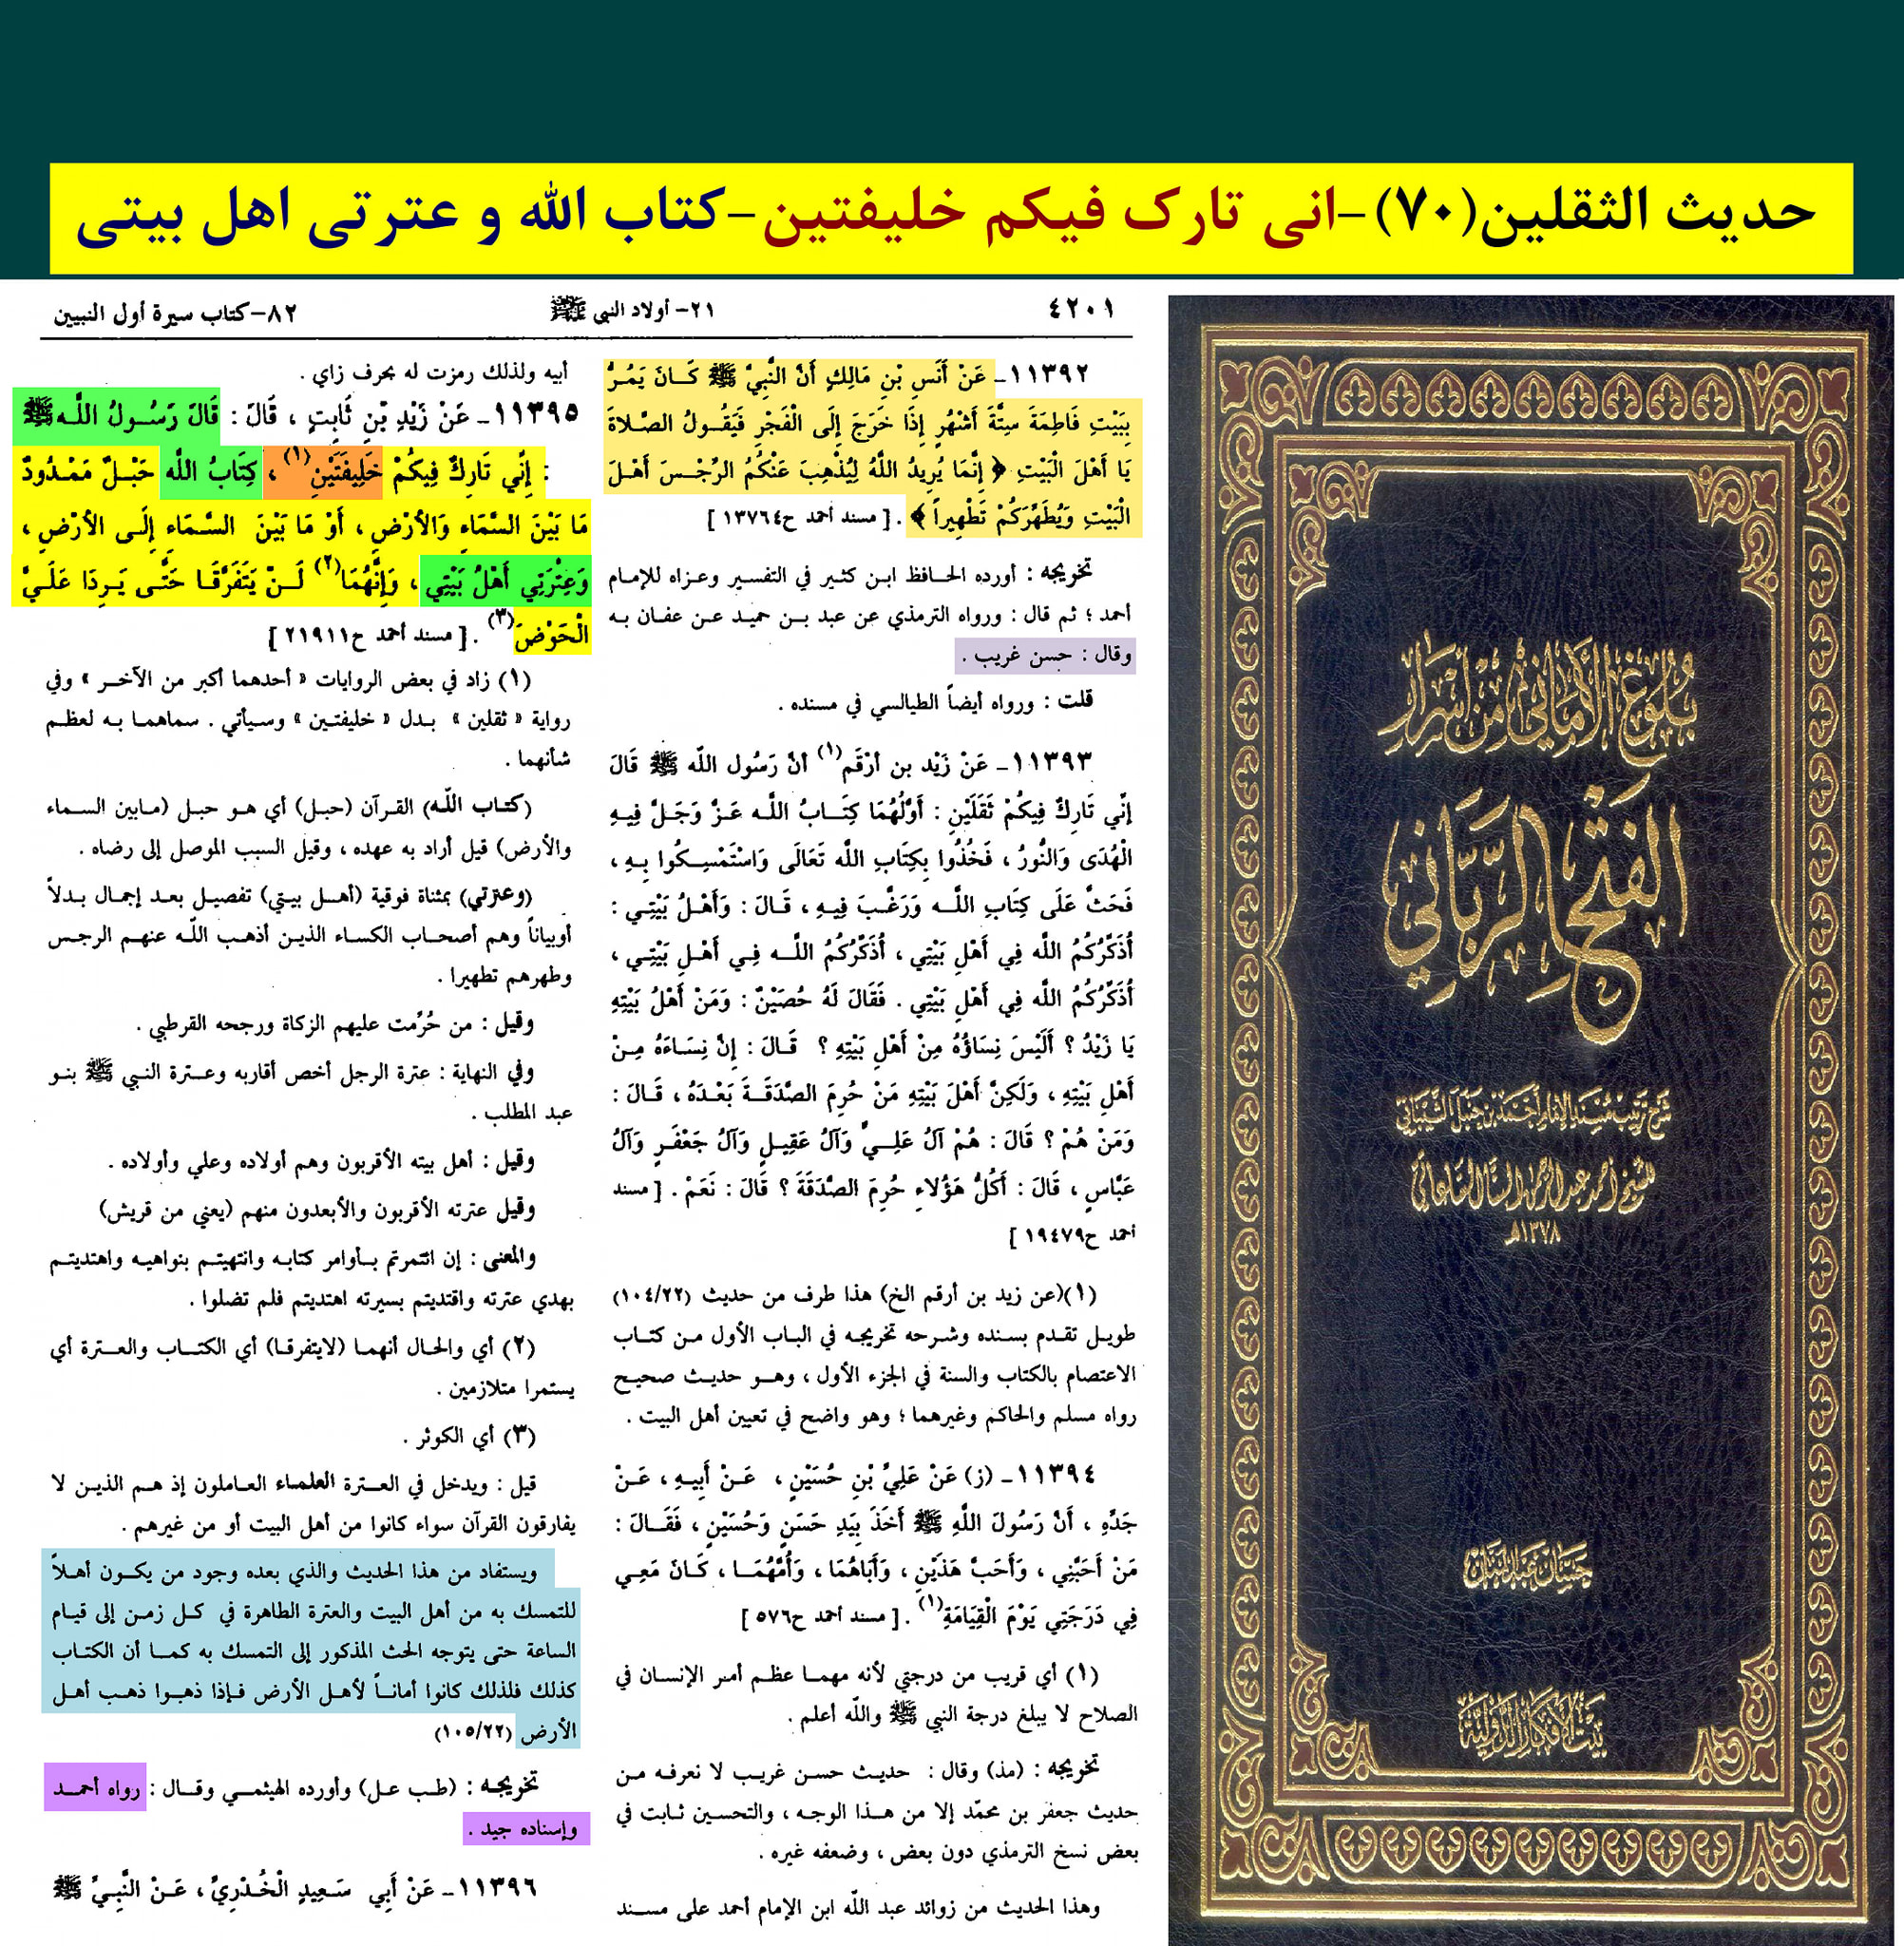 حديث الثقلين(٧٠)-انی تارک فیکم خلیفتین-کتاب الله و عترتی اهل بیتی
٤٢٠١
٢١- أولاد النبي ﷺ
٨٢-كتاب سيرة أول النبيين
١١٣٩٢- عَنْ أَنَسِ بْنِ مَالِكٍ أَنَّ النَّبِيَّ ﷺ كَـانَ يَمُـرُّ
بِبَيْتِ فَاطِمَةَ سِتَّةَ أَشْهُرٍ إِذَا خَرَجَ إِلَى الْفَجْرِ فَيَقُـولُ الصَّـلاةَ
يَا أَهْلَ الْبَيْتِ ﴿ إِنَّمَا يُرِيدُ اللَّهُ لِيُذْهِبَ عَنْكُمُ الرِّجْـسَ أَهْـلَ
الْبَيْتِ وَيُطَهِّرَكُمْ تَطْهِيراً ﴾ . [ مسند أحمد ح١٣٧٦٤ ]
تخريجه : أورده الحـافظ ابـن كثـير في التفسـير وعـزاه للإمـام
أحمد ؛ ثم قال : ورواه الترمذي عن عبد بـن حميـد عـن عفـان بـه
وقال : حسن غريب .
قلت : ورواه أيضاً الطيالسي في مسنده .
١١٣٩٣- عَنْ زَيْد بن أرْقَم(١) أنَّ رَسُول اللّه ﷺ قَالَ
إِنِّي تَارِكٌ فِيكُمْ ثَقَلَيْنِ : أَوَّلُهُمَا كِتَـابُ اللَّـه عَـزَّ وَجَـلَّ فِيـهِ
الْهُدَى وَالنُّورُ ، فَخُذُوا بِكِتَابِ اللَّه تَعَالَى وَاسْتَمْسِـكُوا بِـهِ ،
فَحَثَّ عَلَى كِتَابِ اللَّـه وَرَغَّـبَ فِيـهِ ، قَـالَ : وَأَهْـلُ بَيْتِـي :
أُذَكِّرُكُمُ اللَّه فِي أَهْلِ بَيْتِي ، أُذَكِّرُكُمُ اللَّـه فِـي أَهْـلِ بَيْتِـي ،
أُذَكِّرُكُمُ اللَّه فِي أَهْلِ بَيْتِي . فَقَالَ لَهُ حُصَيْنٌ : وَمَنْ أَهْلُ بَيْتِهِ
يَا زَيْدُ ؟ أَلَيْسَ نِسَاؤُهُ مِنْ أَهْلِ بَيْتِهِ ؟ قَـالَ : إِنَّ نِسَـاءَهُ مِـنْ
أَهْلِ بَيْتِهِ ، وَلَكِنَّ أَهْلَ بَيْتِهِ مَنْ حُرِمَ الصَّدَقَـةَ بَعْـدَهُ ، قَـالَ :
وَمَنْ هُمْ ؟ قَالَ : هُمْ آلُ عَلِـيٍّ وَآلُ عَقِيـلٍ وَآلُ جَعْفَـرٍ وَآلُ
عَبَّاسٍ ، قَالَ : أَكُلُّ هَؤُلاءِ حُرِمَ الصَّدَقَةَ ؟ قَالَ : نَعَمْ . [ مسند
أحمد ح١٩٤٧٩ ]
(١)(عن زيد بن أرقم الخ) هذا طرف من حديث (١٠٤/٢٢)
طويـل تقـدم بسـنده وشـرحه تخريجـه في البـاب الأول مـن كتـاب
الاعتصام بالكتاب والسنة في الجزء الأول ، وهـو حديـث صحيـح
رواه مسلم والحاكم وغيرهما ؛ وهو واضح في تعيين أهل البيت .
١١٣٩٤- (ز) عَنْ عَلِيِّ بْنِ حُسَيْنٍ ، عَـنْ أَبِيـهِ ، عَـنْ
جَدِّهِ ، أَنَّ رَسُولَ اللَّهِ ﷺ أَخَذَ بِيَدِ حَسَنٍ وَحُسَيْنٍ ، فَقَـالَ :
مَنْ أَحَبَّنِي ، وَأَحَبَّ هَذَيْنِ ، وَأَبَاهُمَا ، وَأُمَّهُمَـا ، كَـانَ مَعِـي
فِي دَرَجَتِي يَوْمَ الْقِيَامَةِ(١) . [ مسند أحمد ح٥٧٦ ]
(١) أي قريب من درجتي لأنه مهمـا عظـم أمـر الإنسـان في
الصلاح لا يبلغ درجة النبي ﷺ واللّه أعلم .
تخريجه : (مذ) وقال : حديـث حسـن غريـب لا نعرفـه مـن
حديث جعفر بن محمّد إلا من هـذا الوجـه ، والتحسـين ثـابت في
بعض نسخ الترمذي دون بعض ، وضعفه غيره .
وهذا الحديث من زوائد عبد اللّه ابن الإمام أحمد على مسـند
أبيه ولذلك رمزت له بحرف زاي .
١١٣٩٥- عَنْ زَيْدِ بْنِ ثَابِتٍ ، قَالَ : قَالَ رَسُـولُ اللَّـهﷺ
: إِنِّي تَارِكٌ فِيكُمْ خَلِيفَتَيْنِ(١) ، كِتَابُ اللَّه حَبْـلٌ مَمْـدُودٌ
مَا بَيْنَ السَّمَاءِ وَالأَرْضِ ، أَوْ مَا بَيْنَ السَّمَاءِ إِلَـى الأَرْضِ ،
وَعِتْرَتِي أَهْلُ بَيْتِي ، وَإِنَّهُمَا(٢) لَـنْ يَتَفَرَّقَـا حَتَّـى يَـرِدَا عَلَـيَّ
الْحَوْضَ(٣) . [ مسند أحمد ح٢١٩١١ ]
(١) زاد في بعض الروايات « أحدهما أكبر من الآخـر » وفي
رواية « ثقلين » بـدل « خليفتـين » وسـيأتي . سماهمـا بـه لعظـم
شأنهما .
(كتـاب اللّـه) القـرآن (حبـل) أي هـو حبـل (مـابين السـماء
والأرض) قيل أراد به عهده ، وقيل السبب الموصل إلى رضاه .
(وعترتي) بمثناة فوقية (أهـل بيـتي) تفصيـل بعـد إجمـال بـدلاً
أوبياناً وهم أصحـاب الكساء الذيـن أذهـب اللّـه عنهـم الرجـس
وطهرهم تطهيرا .
وقيل : من حُرِّمت عليهم الزكاة ورجحه القرطبي .
وفي النهاية : عترة الرجل أخص أقاربه وعـترة النبي ﷺ بنـو
عبد المطلب .
وقيل : أهل بيته الأقربون وهم أولاده وعلي وأولاده .
وقيل عترته الأقربون والأبعدون منهم (يعني من قريش)
والمعنى : إن ائتمرتم بـأوامر كتابـه وانتهيتـم بنواهيـه واهتديتـم
بهدي عترته واقتديتم بسيرته اهتديتم فلم تضلوا .
(٢) أي والحال أنهمـا (لايتفرقـا) أي الكتـاب والعـترة أي
يستمرا متلازمين .
(٣) أي الكوثر .
قيل : ويدخل في العـترة العلماء العـاملون إذ هـم الذيـن لا
يفارقون القرآن سواء كانوا من أهل البيت أو من غيرهم .
ويستفاد من هذا الحديث والذي بعده وجود من يكـون أهـلاً
للتمسك به من أهل البيت والعترة الطاهرة في كـل زمـن إلى قيـام
الساعة حتى يتوجه الحث المذكور إلى التمسك به كمـا أن الكتـاب
كذلك فلذلك كانوا أمانـاً لأهـل الأرض فـإذا ذهبـوا ذهـب أهـل
الأرض (١٠٥/٢٢)
تخريجـه : (طـب عـل) وأورده الهيثمـي وقـال : رواه أحمـد
وإسناده جيد .
١١٣٩٦- عَنْ أَبِي سَـعِيدٍ الْخُـدْرِيِّ ، عَـنْ النَّبِـيِّ ﷺ
بلوغ الأماني من أسرار
الفتح الرباني
شرح ترتيب مسند الإمام أحمد بن حنبل الشيباني
للشيخ أحمد عبد الرحمن البنا الساعاتي
١٣٧٨هـ
حسان عبد المنان
بيت الأفكار الدولية